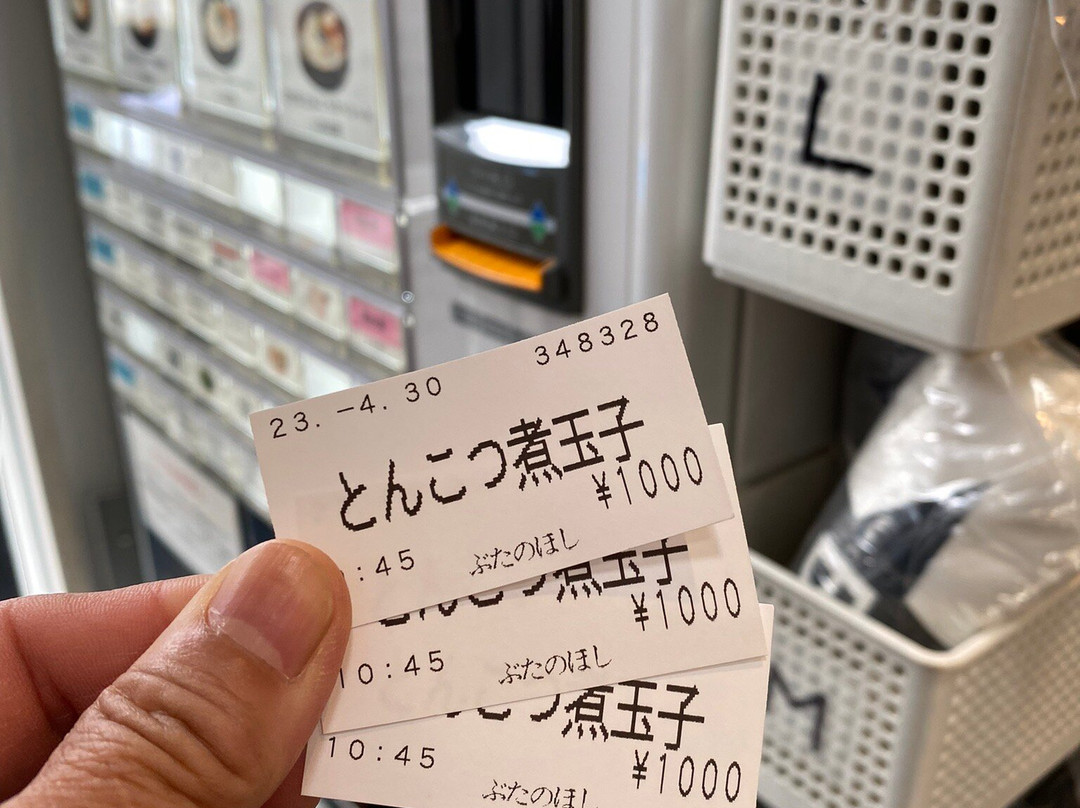 L
23. -4. 30 348328
とんこつ煮玉子
¥1000
:45 ぶたのほし
煮玉子
¥1000
10:45 ぶたのほし
煮玉子
¥1000
10:45
ぶたのほし
M